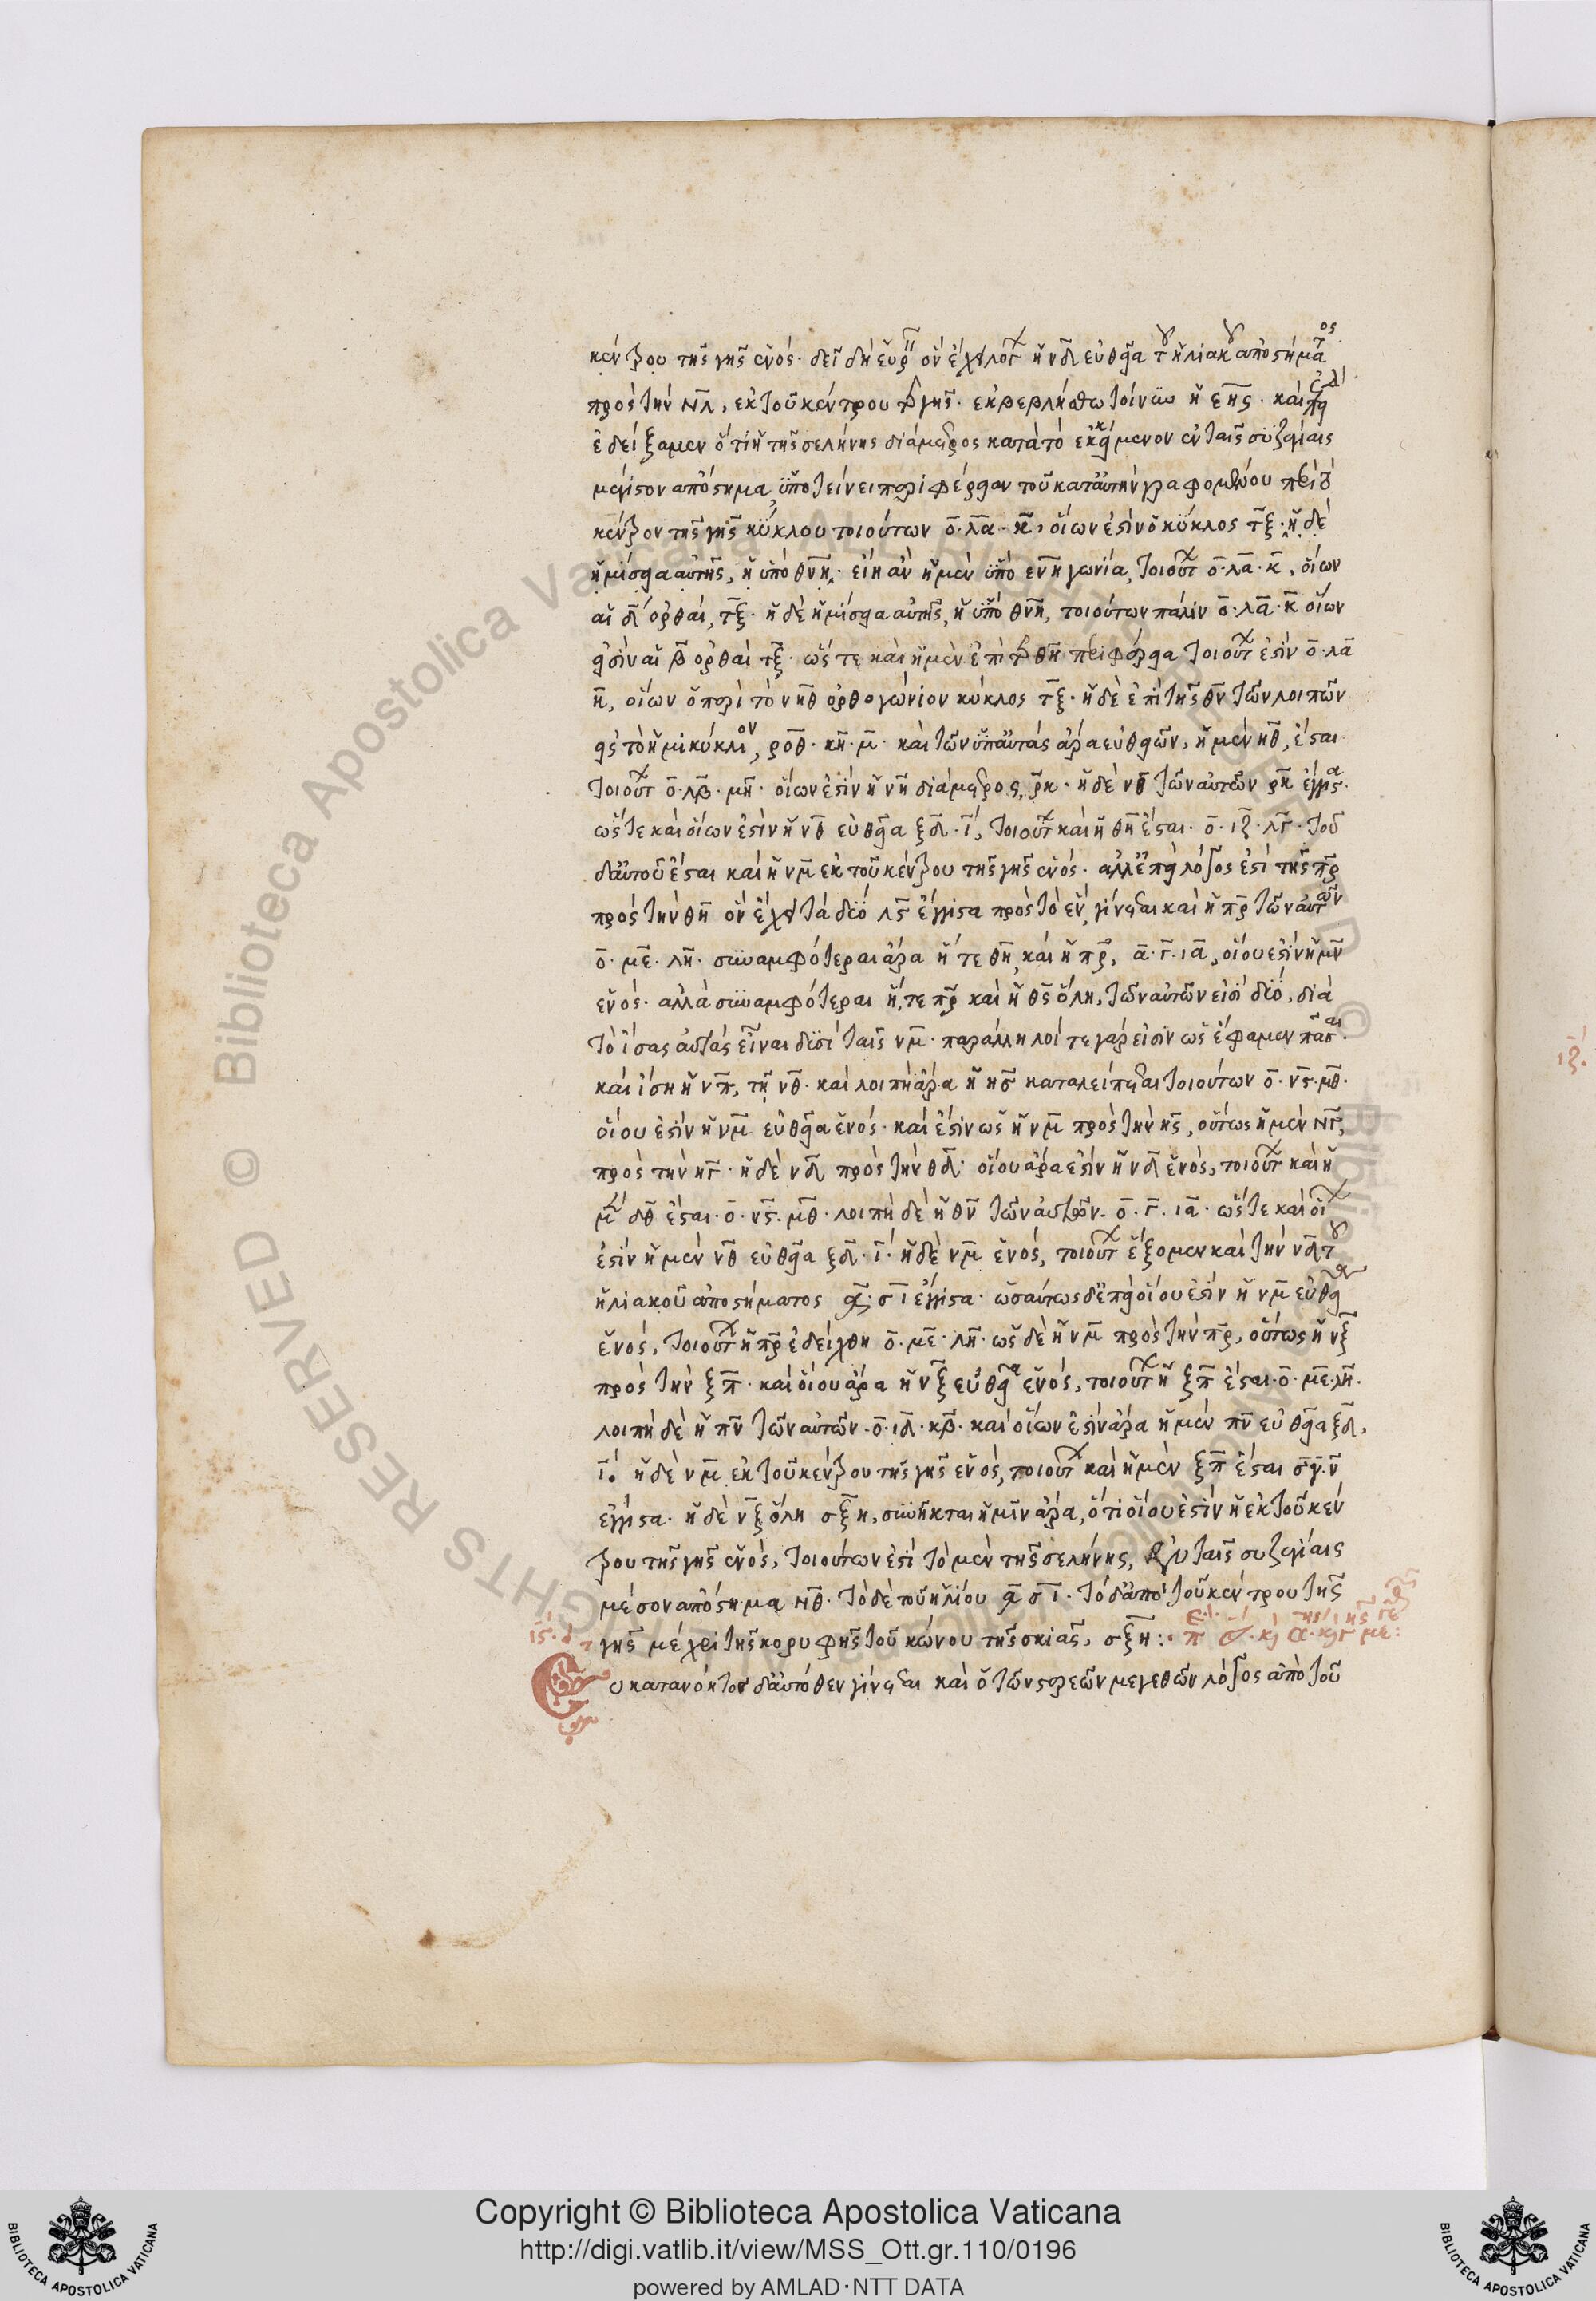 κέντρου τῆς γῆς ἑνός· δεῖ δὴ εὑρεῖν ὃν ἔχει λόγον ἡ νδ εὐθεῖα τοῦ ἡλιακοῦ ἀποστήματος
πρὸς τὴν νλ, ἐκ τοῦ κέντρου τῆς γῆς. ἐκβεβλήσθω τοίνυν ἡ
ἐδείξαμεν ὅτι ἡ τῆς σελήνης διάμετρος κατὰ τὸ ἐκκείμενον ἐν ταῖς συζυγίαις
μέγιστον ἀπόστημα, ὑποτείνει περιφέρειαν τοῦ κατ' αὐτὴν γραφομένου περὶ τὸ
κέντρον τῆς γῆς κύκλου τοιούτων ο· λα· κ, οἵων ἐστὶν ὁ κύκλος τξ· ἡ δὲ
ἡμίσεια αὐτῆς, ἡ ὑπὸ θνη· εἴη ἂν ἡ μὲν ὑπὸ ενη γωνία, τοιούτων ο· λα· κ, οἵων
αἱ δ ὀρθαί, τξ· ἡ δὲ ἡμίσεια αὐτῆς, ἡ ὑπὸ θνη, τοιούτων πάλιν ο· λα· κ οἵων
εἰσὶν αἱ β ὀρθαὶ τξ· ὥστε καὶ ἡ μὲν ἐπὶ τῆς θη περιφέρεια τοιούτων ἐστὶν ο· λα
κ, οἵων ὁ περὶ τὸ νηθ ὀρθογώνιον κύκλος τξ· ἡ δὲ ἐπὶ τῆς θν τῶν λοιπῶν
εἰς τὸ ἡμικύκλιον, ροθ· κη· μ· καὶ τῶν ὑπ' αὐτὰς ἄρα εὐθειῶν, ἡ μὲν ηθ, ἔσται
τοιούτων ο· λβ· μη· οἵων ἐστὶν ἡ νη διάμετρος, ρκ· ἡ δὲ νθ τῶν αὐτῶν ρκ ἔγγιστα·
ὥστε καὶ οἵων ἐστὶν ἡ νθ εὐθεῖα ξδ· ι, τοιούτων καὶ ἡ θη ἔσται· ο· ιζ· λγ· τοῦ
δ' αὐτοῦ ἔσται καὶ ἡ νμ ἐκ τοῦ κέντρου τῆς γῆς ἑνός· ἀλλ' ἐπεὶ λόγος ἐστὶ τῆς πρ
πρὸς τὴν θη ὃν ἔχει τὰ δύο λς ἔγγιστα πρὸς τὸ ἕν, γίνεται καὶ ἡ πρ τῶν αὐτῶν
ο· με· λη· συναμφότεραι ἄρα ἥ τε θη, καὶ ἡ πρ, α· γ· ια, οἵου ἐστὶν ἡ μν
ἑνός· ἀλλὰ συναμφότεραι ἥ τε πρ καὶ ἡ θς ὅλη, τῶν αὐτῶν εἰσὶ δύο, διὰ
τὸ ἴσας αὐτὰς εἶναι δυσὶ ταῖς νμ· παράλληλοί τε γάρ εἰσιν ὡς ἔφαμεν πᾶσαι·
καὶ ἴση ἡ νπ, τῇ νθ· καὶ λοιπὴ ἄρα ἡ ης καταλείπεται τοιούτων ο· νς· μθ·
οἵου ἐστὶν ἡ νμ εὐθεῖα ἑνός· καὶ ἔστιν ὡς ἡ νμ πρὸς τὴν ης, οὕτως ἡ μὲν νγ,
πρὸς τὴν ηγ· ἡ δὲ νδ πρὸς τὴν θδ· οἵου ἄρα ἐστὶν ἡ νδ ἑνός, τοιούτων καὶ ἡ
μὲν δθ ἔσται· ο· νς· μθ· λοιπὴ δὲ ἡ θν τῶν αὐτῶν· ο· γ· ια· ὥστε καὶ οἵων
ἐστὶν ἡ μὲν νθ εὐθεῖα ξδ· ι· ἡ δὲ νμ ἑνός, τοιούτων ἕξομεν καὶ τὴν νδ τοῦ
ἡλιακοῦ ἀποστήματος ασι ἔγγιστα· ὡσαύτως δ' ἐπεὶ οἵου ἐστὶν ἡ νμ εὐθεῖα
ἑνός, τοιούτων ἡ πρ ἐδείχθη ο· με· λη· ὡς δὲ ἡ νμ πρὸς τὴν πρ, οὕτως ἡ νξ
πρὸς τὴν ξπ· καὶ οἵου ἄρα ἡ νξ εὐθεῖα ἑνός, τοιούτων ἡ ξπ ἔσται· ο· με· λη·
λοιπὴ δὲ ἡ πν τῶν αὐτῶν· ο· ιδ· κβ· καὶ οἵων ἐστὶν ἄρα ἡ μὲν πν εὐθεῖα ξδ,
ι· ἡ δὲ νμ ἐκ τοῦ κέντρου τῆς γῆς ἑνός, τοιούτων καὶ ἡ μὲν ξπ ἔσται σγ· ν
ἔγγιστα· ἡ δὲ νξ ὅλη σξη, συνῆκται ἡμῖν ἄρα, ὅτι οἵου ἐστὶν ἡ ἐκ τοῦ κέν
τρου τῆς γῆς ἑνός, τοιούτων ἐστὶ τὸ μὲν τῆς σελήνης, ἐν ταῖς συζυγίαις
μέσον ἀπόστημα νθ· τὸ δὲ τοῦ ἡλίου ασι· τὸ δ' ἀπὸ τοῦ κέντρου τῆς
γῆς μέχρι τῆς κορυφῆς τοῦ κώνου τῆς σκιᾶς, σξη:·
Εὐκατανόητος δ' αὐτόθεν γίνεται καὶ ὁ τῶν στερεῶν μεγεθῶν λόγος ἀπὸ τοῦ
ιζ·
© Biblioteca Apostolica Vaticana ALL RIGHTS RESERVED
Copyright © Biblioteca Apostolica Vaticana
http://digi.vatlib.it/view/MSS_Ott.gr.110/0196
powered by AMLAD·NTT DATA
BIBLIOTECA APOSTOLICA VATICANA
BIBLIOTECA APOSTOLICA VATICANA